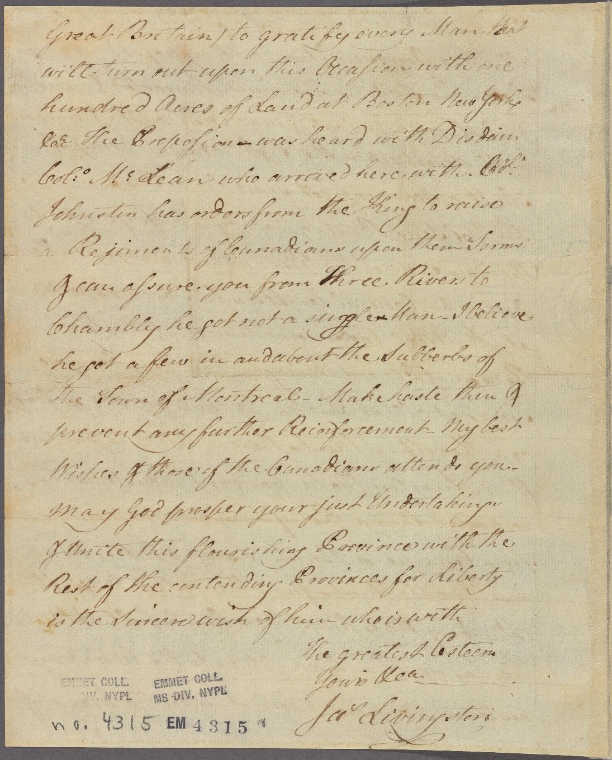 Great Britain) to gratify every Man that
will turn out upon this Occasion with one
hundred Acres of Land at Boston New York
&ca The Preposion was heard with Disdain
Colo. Mc Lean who arrived here with Colo.
Johnston has orders from the King to raise
a Rejiment of Cunadians upon them Terms
I can assure you from Three Rivers to
Chambly he got not a single Man I believe
he got a few in and about the Subberbs of
the Town of Montreal - Make haste then &
prevent any further Reinforcement My best
Wishes & those of the Canadians attends you -
may God prosper your just Undertaking
& Unite this flourishing Province with the
Rest of the contending Provinces for Liberty
is the Sincere wish of him who is with
the greatest Esteem
Yours &ca
Jas Livingston
EMMET COLL. EMMET COLL.
DIV. NYPL MS. DIV. NYPL
no. 4315 EM 4315